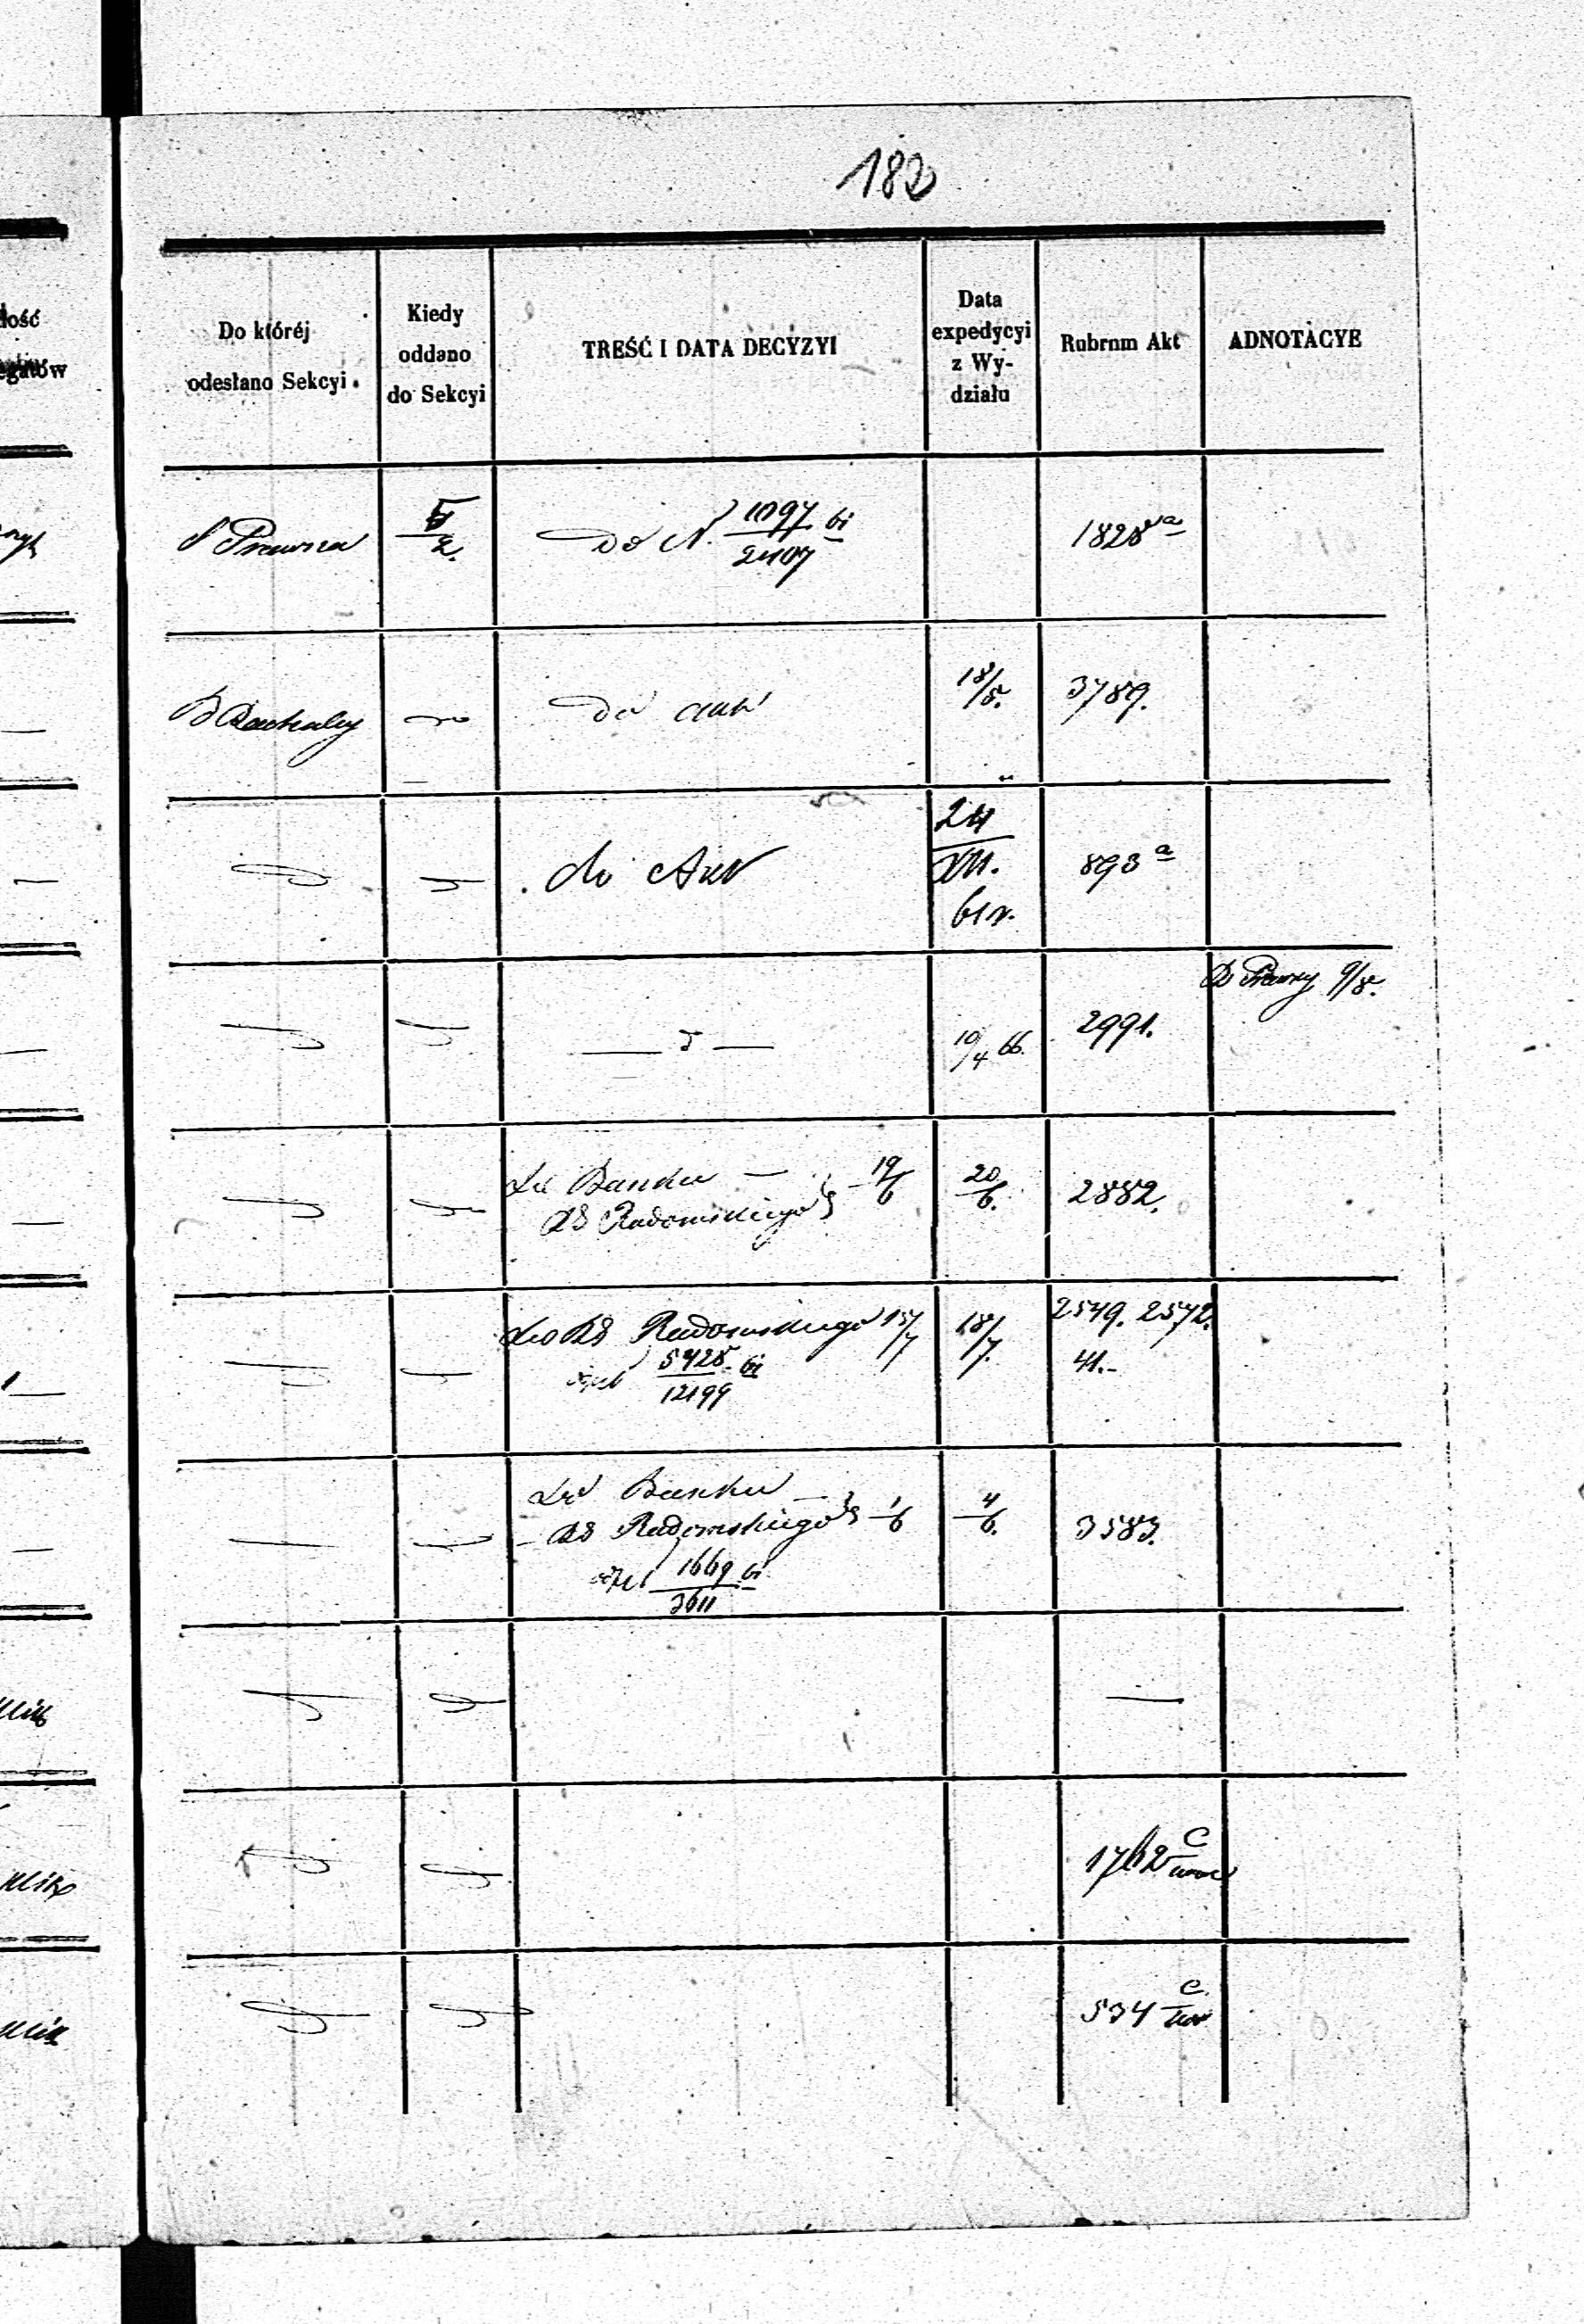 182
Do któréj
odesłano Sekcyi.
Kiedy
oddano
do Sekcyi
TREŚĆ I DATA DECYZYI
Data
expedycyi
z Wy-
działu
Rubrum Akt
ADNOTACYE
ość
egatów
S Prawna
5/2.
Do N. 1097/2407 bi
1828 a
Do akt
18/5.
3789.
do Akt
24
XII.
61 r.
893 a
10/4 66.
2991.
Do Prawny 9/5.
Do Banku — 19/6
DS Radomskiego
20/6.
2882.
Do DS Radomskiego 15/7
5428/12199 bi
18/7.
2549. 2572.
41.-
Do Banku — 1/6
DS Radomskiego
1669/3611 bi
4/6.
3583.
1762 C
534 C